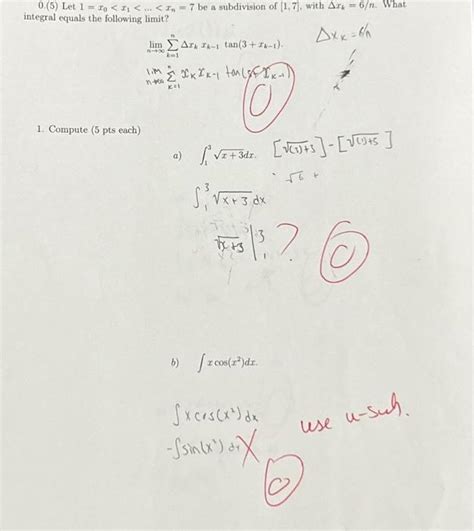 0.(5) Let 1 = x₀ < x₁ < ... < xₙ = 7 be a subdivision of [1, 7], with Δxₖ = 6/n. What
integral equals the following limit?
lim n→∞ ∑ k=1 n Δxₖ xₖ₋₁ tan(3 + xₖ₋₁).
Δxₖ = 6/n
lim n→∞ ∑ k=1 n xₖ xₖ₋₁ tan( xₖ₋₁)
0
1. Compute (5 pts each)
a) ∫₁³ √(x + 3)dx. [√(3)+3] - [√(1)+3]
√6 +
∫₁³ √(x+3) dx
√(x+3) |₁³ ? 0
b) ∫ x cos(x²)dx.
∫ x cos(x²) dx
use u-sub.
-∫ sin(x²) dx X
0